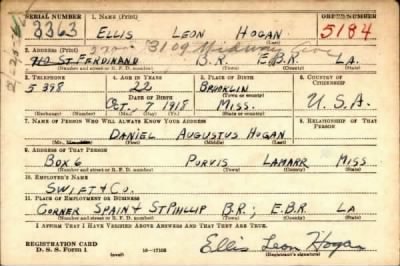 SERIAL NUMBER 1. NAME (Print) ORDER NUMBER
3363 ELLIS LEON HOGAN 5184
(First) (Middle) (Last)
2. ADDRESS (Print) 3109
712 ST. FERDINAND B.R. E.B.R. LA.
(Number and street or R. F. D. number) (Town) (County) (State)
3. TELEPHONE 4. AGE IN YEARS 5. PLACE OF BIRTH 6. COUNTRY OF CITIZENSHIP
5398 22 BROOKLIN
DATE OF BIRTH (Town or county)
OCT. 7 1918 MISS. U.S.A.
(Mo.) (Day) (Yr.) (State or country)
7. NAME OF PERSON WHO WILL ALWAYS KNOW YOUR ADDRESS 8. RELATIONSHIP OF THAT PERSON
DANIEL AUGUSTUS HOGAN
(First) (Middle) (Last)
9. ADDRESS OF THAT PERSON
BOX 6 PURVIS LAMARR MISS
(Number and street or R. F. D. number) (Town) (County) (State)
10. EMPLOYER'S NAME
SWIFT & CO.
11. PLACE OF EMPLOYMENT OR BUSINESS
CORNER SPAIN & ST PHILLIP B.R.; E.B.R LA
(Number and street or R. F. D. number) (Town) (County) (State)
I AFFIRM THAT I HAVE VERIFIED ABOVE ANSWERS AND THAT THEY ARE TRUE.
REGISTRATION CARD
D. S. S. Form 1 (over) 16—17105 Ellis Leon Hogan
(Registrant's signature)